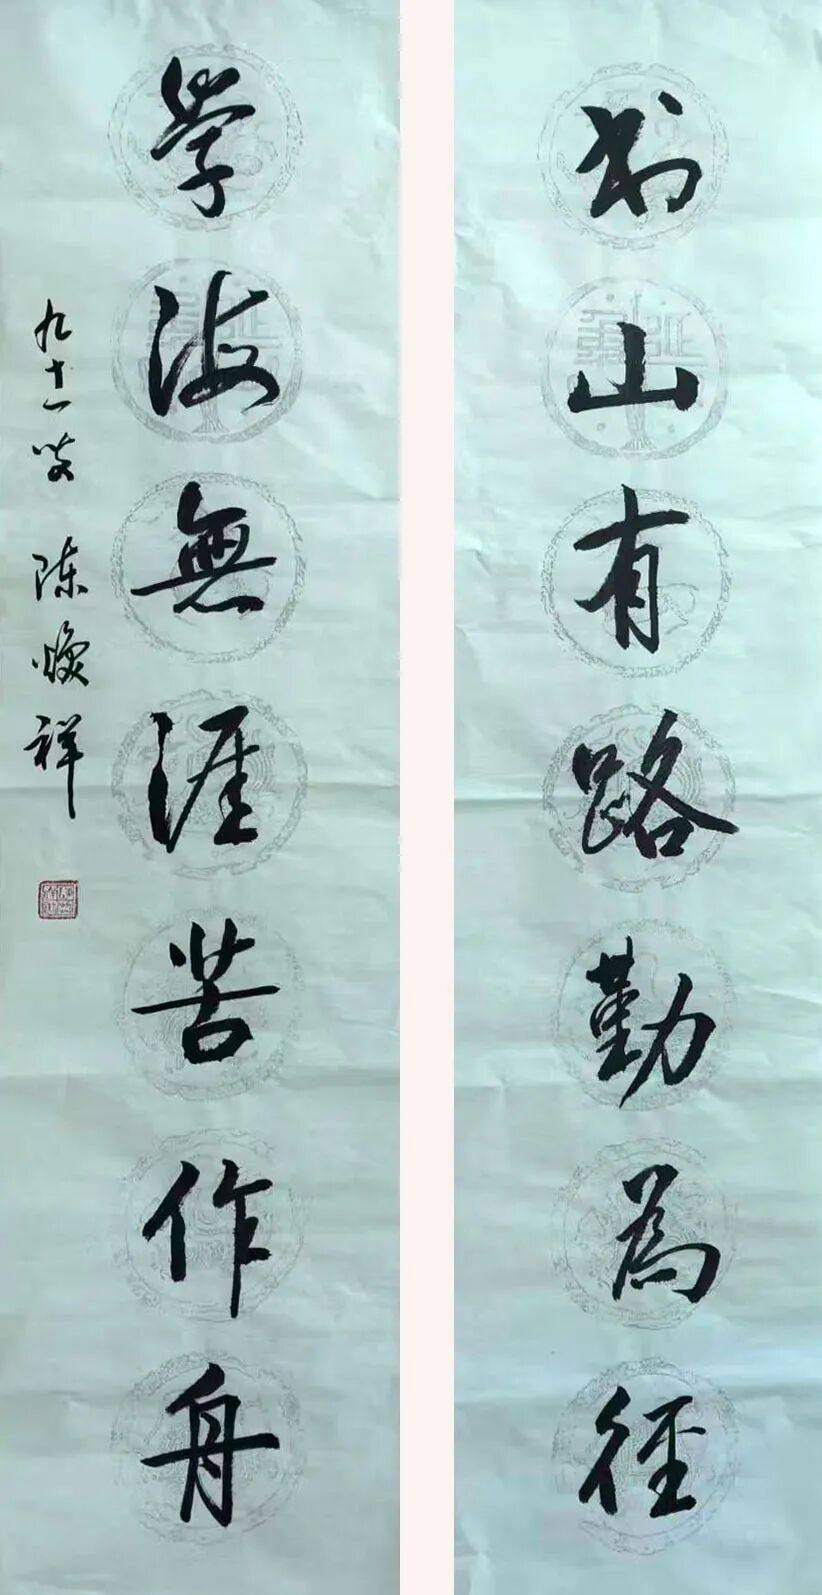 书山有路勤為徑
學海無涯苦作舟
九十一叟 陈焕祥